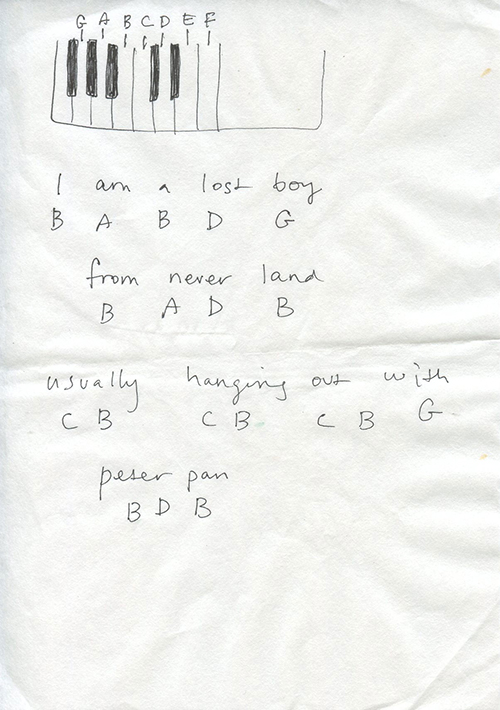 G A B C D E F
I am a lost boy
B A B D G
from never land
B A D B
usually hanging out with
C B C B C B G
peter pan
B D B